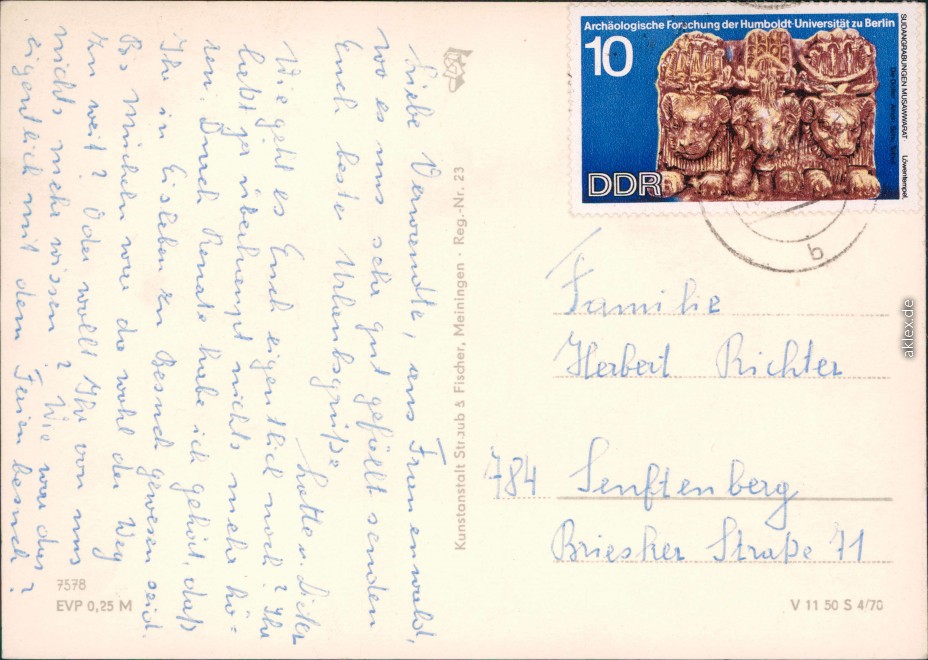 Archäologische Forschung der Humboldt-Universität zu Berlin
10
DDR
SUDANGRABUNGEN MUSAWWARAT
Löwentempel
b
Liebe Verwandte, aus Frauenwald,
wo es uns sehr gut gefällt senden
Euch beste Urlaubsgrüße
Lotte u. Dieter
Wie geht es Euch eigentlich noch? Ihr
habt ja überhaupt nichts mehr hö-
ren. Durch Renate habe ich gehört, daß
Ihr in Eisleben zu Besuch gewesen seid.
Bis München war da wohl der Weg
zu weit? Oder wollt Ihr von uns
nichts mehr wissen? Wie war das
eigentlich mit dem Ferien besuch?
Kunstanstalt Straub & Fischer, Meiningen · Reg.-Nr. 23
Familie
Herbert Richter
784 Senftenberg
Briesker Straße 71
7578
EVP 0,25 M
V 11 50 S 4/70
aklex.de